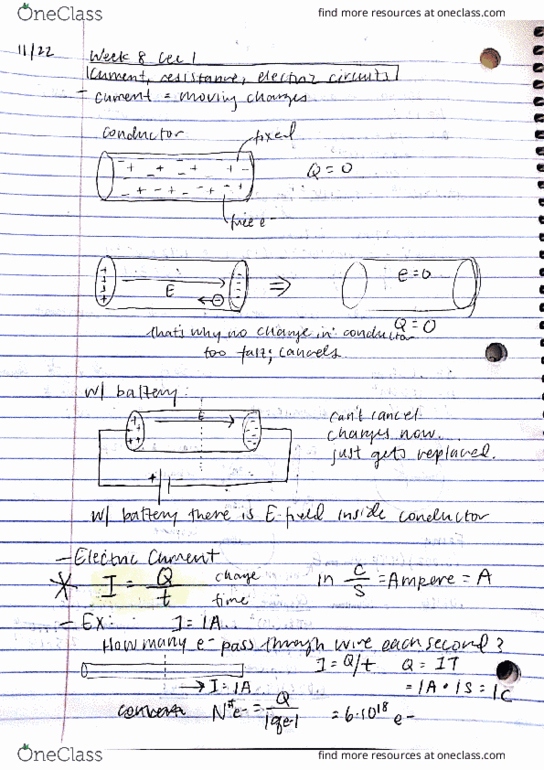 OneClass
find more resources at oneclass.com
11/22
Week 8 Lec 1
Current, resistance, electric circuits
- Current = moving charges
conductor
fixed
Q = 0
free e-
E
e = 0
Q = 0
that's why no change in conductor
too fast; cancels
w/ battery
E
can't cancel
charges now.
just gets replaced.
w/ battery there is E-field inside conductor
- Electric Current
I = Q/t charge time in C/S = Ampere = A
- Ex: I = 1A
How many e- pass through wire each second?
I = Q/t Q = IT
→ I = 1A = 1A · 1S = 1C
N#e- = Q/|qe-| = 6·10^18 e-
OneClass
find more resources at oneclass.com